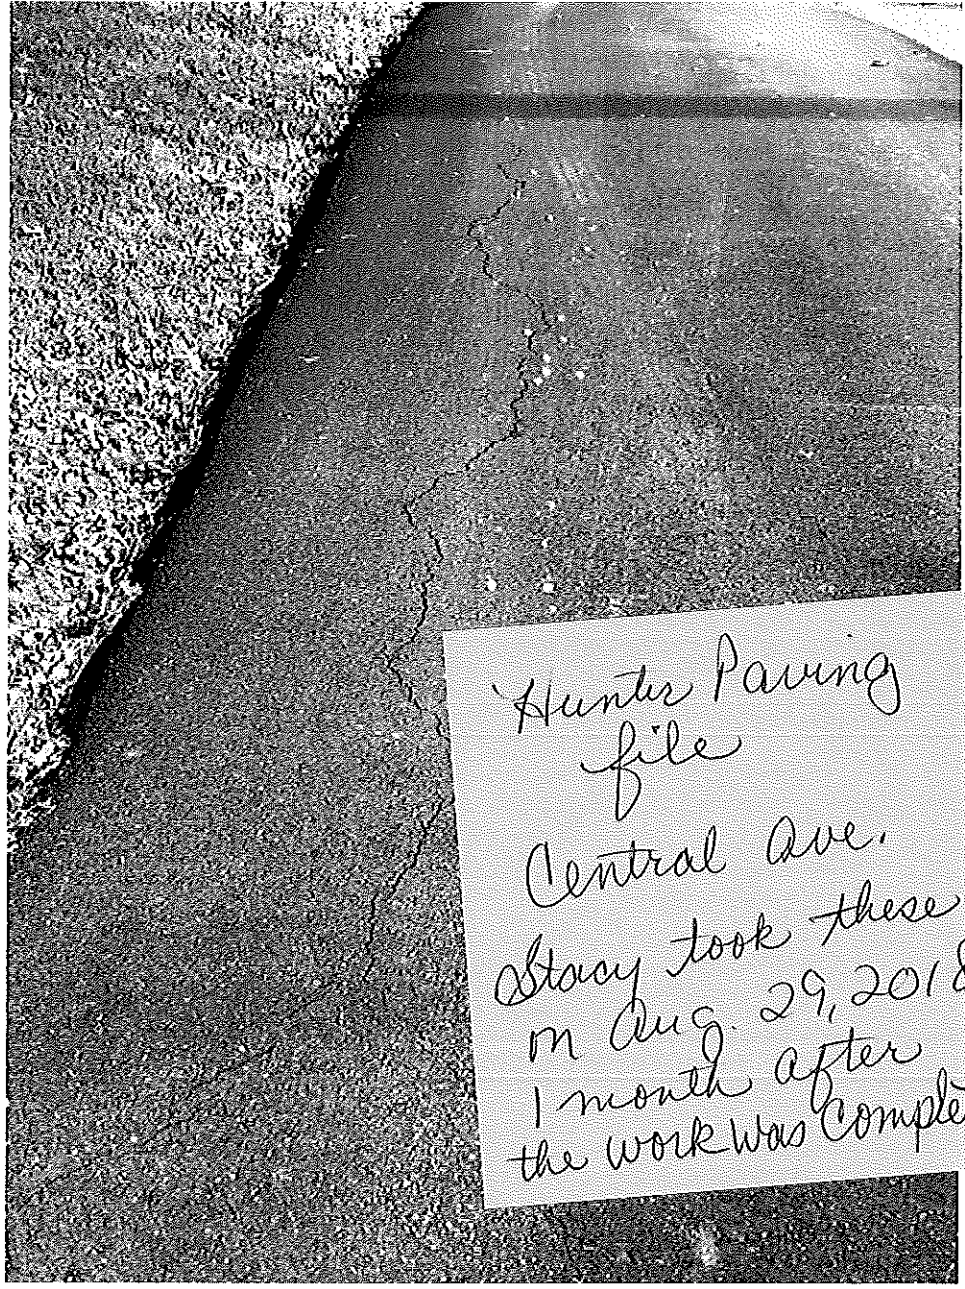 Hunter Paving
file
Central Ave.
Stacy took these
on Aug. 29, 2018
1 month after
the work was comple